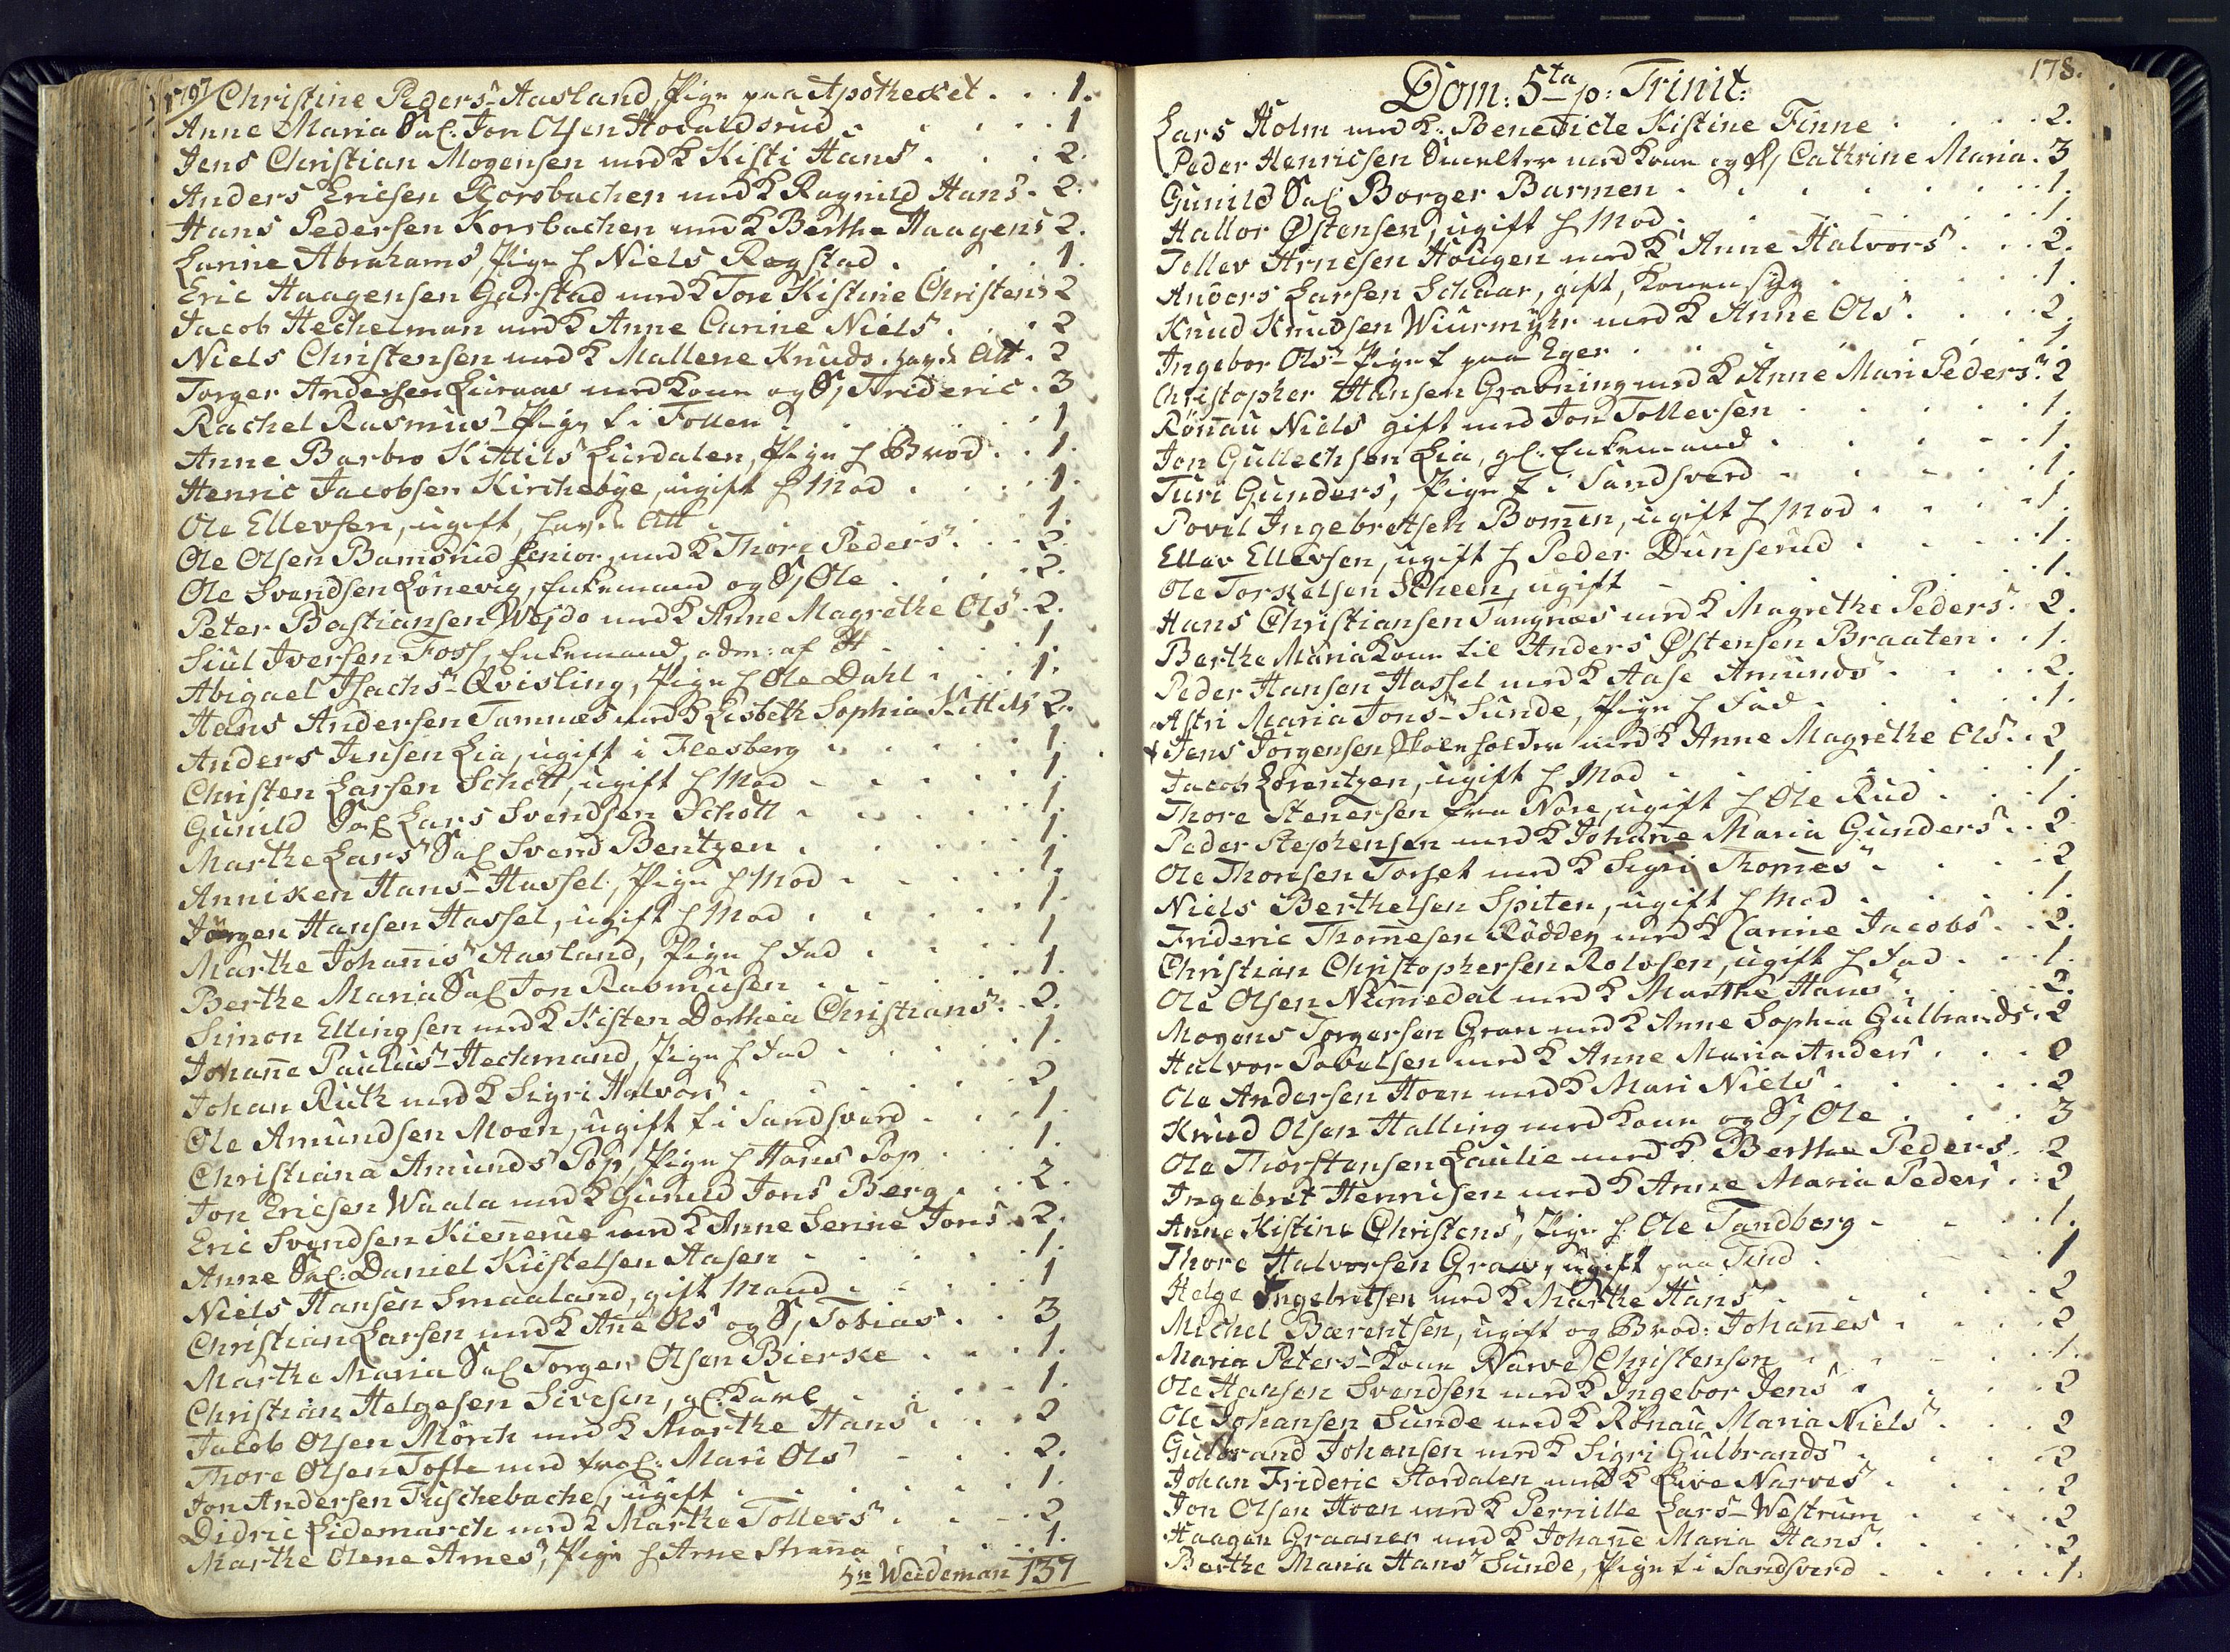 1797 Christine Peders- Aasland, Pige paa Apotheket . . . 1.
Anne Maria Sal: Jon Olsen Hovaldsrud . . . 1
Jens Christian Mogensen med K Kisti Hans . . . 2.
Anders Ericsen Korsbachen med K Ragnild Hans . 2.
Hans Pedersen Korsbachen med K Berthe Haagens 2.
Lurine Abrahams, Pige h Niels Rogstad . . 1.
Eric Haagensen Garstad med K Tore Kistine Christens 2
Jacob Hechelman med K Anne Carine Niels . . . 2
Niels Christensen med K Mallene Knuds . Att . 2
Torger Andersen Luraas med Kone og S, Frideric . 3
Rachel Rasmus- Pige f i Follen . . . 1
Anne Barbro Kittils Lurdalen, Pige h Brod . . 1.
Henric Jacobsen Kirchebye, ugift h Mod . . . 1.
Ole Ellevsen, ugift, Att . . . 1.
Ole Olsen Bamsrud senior, med K Thore Peders . . 2.
Ole Svendsen Lonevig, Enkemand og S, Ole . . . 2.
Peter Bastiansen Wejdo med K Anne Magrethe Ols . 2.
Siul Iversen Foss, Enkemand, adm: af H . . . 1
Abigael Isachs- Qvisling, Pige h Ole Dahl . . . 1.
Hans Andersen Tamnæs med K Lisbeth Sophia Kittils 2.
Anders Jensen Lia, ugift i Flesberg . . . 1
Christen Larsen Schott, ugift h Mod . . . 1
Gunild Sal Lars Svendsen Schott . . . 1.
Marthe Lars Sal Svend Bentzen . . . 1.
Anniken Hans- Hassel, Pige h Mod . . . 1.
Jörgen Hansen Hassel, ugift h Mod . . . 1
Marthe Johannis Aasland, Pige h Fad . . . 1
Berthe Maria Sal Jon Rasmusen . . . 1.
Simon Ellingsen med K Kisten Dorthea Christians . . 2.
Johanne Paulus- Hechmand, Pige h Fad . . . 1.
Johan Ruth med K Sigri Halvors . . . 2
Ole Amundsen Moen, ugift f i Sandsverd . . . 1.
Christiana Amunds Pop, Pige h Hans Pop . . . 1.
Jon Ericsen Waala med K Gunild Jons Berg . . . 2.
Eric Svendsen Kiennerue med K Anne Serine Jons . 2.
Anne Sal: Daniel Kiistelsen Aasen . . . 1.
Niels Hansen Smaaland, gift Mand . . . 1
Christian Larsen med K Ane Ols og S, Tobias . . 3
Marthe Maria Sal Torger Olsen Bierske . . . 1.
Christian Helgesen Sivesen, gl: Karl . . . 1.
Jacob Olsen Mörch med K Marthe Hans . . . 2
Thore Olsen Tofte med trol: Mari Ols . . 2.
Jon Andersen Fuschebache, ugift . . . 1.
Didric Lidemarch med K Marthe Tollevs . . . 2
Marthe Olene Arnes, Pige h Arne Stranna . . . 1.
Hr Weideman 137
178.
Dom: 5ta p: Trinit:
Lars Holm med K: Benedicte Kistine Finne . . . 2.
Peder Henricsen Smelter med Kone og D, Cathrine Maria . 3
Gunild Sal Borger Barmen . . . 1.
Hallor Østensen, ugift h Mod . . . 1.
Tollev Arnesen Hougen med K Anne Halvors . . . 2.
Anders Larsen Schaar, gift, Konen syg . . . 1.
Knud Knudsen Wiurmyhr med K Anne Ols . . . 2.
Ingebor Ols- Pige f paa Eger . . . 1
Christopher Hansen Gravning med K Anne Mari Peders . 2
Rönnau Niels gift med Jon Tollevsen . . . 1.
Jon Gullechsen Lia, gl: Enkemand . . . 1.
Turi Gunders, Pige f i Sandsverd . . . 1.
Povel Ingebretsen Bommen, ugift h Mod . . . 1.
Ellev Ellevsen, ugift h Peder Dunserud . . . 1.
Ole Torkelsen Scheen, ugift . . . 1.
Hans Christiansen Tangnæs med K Magrethe Peders . 2.
Berthe Maria Kone til Anders Østensen Braaten . . 1.
Peder Hansen Hassel med K Aase Amunds . . . 2.
Astri Maria Jons- Sunde, Pige h Fad . . . 1.
Jens Jörgensen Skoleholder med K Anne Magrethe Ols . . 2
Jacob Lorentzen, ugift h Mod . . . 1.
Thore Stenersen fra Nore, ugift h Ole Rud . . . 1.
Peder Stephensen med K Johanne Maria Gunders . . 2
Ole Thorsen Torset med K Sigri Thomes . . . 2
Niels Berthelsen Spiten, ugift h Mod . . . 1.
Frideric Thomesen Rödden med K Carine Jacobs . . 2.
Christian Christophersen Rolvsen, ugift h Fad . . . 1.
Ole Olsen Nummedal med K Marthe Hans . . . 2.
Mogens Torgersen Gran med K Anne Sophia Gulbrands . 2
Halvor Povelsen med K Anne Maria Anders . . . 2
Ole Andersen Hoen med K Mari Niels . . . 2
Knud Olsen Halling med Kone og S, Ole . . . 3
Ole Thorstensen Laulie med K Berthe Peders . 2
Ingebret Henricsen med K Anne Maria Peders . . 2
Anne Kistine Christens, Pige h Ole Tandberg . . . 1.
Thore Halvorsen Grav, ugift paa Tind . . . 1
Helge Ingebretsen med K Marthe Hans . . . 2
Michel Bærentsen, ugift og Brod: Johannes . . . 2
Maria Peters- Kone Narve Christensen . . . 1.
Ole Hansen Svendsen med K Ingebor Jens . . . 2
Ole Johansen Sunde med K Rönau Maria Niels . . 2
Gulbrand Johansen med K Sigri Gulbrands . . . 2
Johan Frideric Hordalen med K Live Narves . . . 2
Jon Olsen Hoen med K Pernille Lars- Westrum . . . 2
Haagen Graaner med K Johanne Maria Hans . . . 2
Berthe Maria Hans Sunde, Pige f i Sandsverd . . . 1.